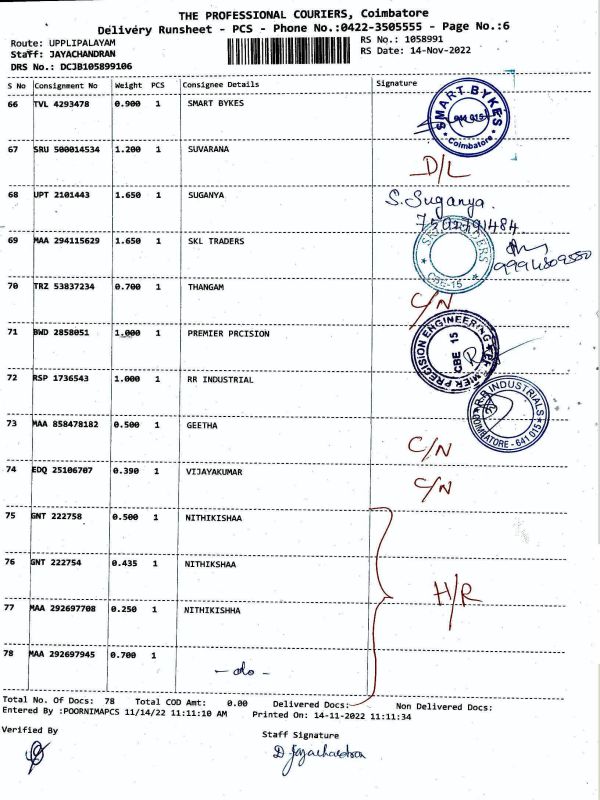 THE PROFESSIONAL COURIERS, Coimbatore
Delivery Runsheet - PCS - Phone No.:0422-3505555 - Page No.:6
Route: UPPLIPALAYAM
RS No.: 1058991
Staff: JAYACHANDRAN
RS Date: 14-Nov-2022
DRS No.: DCJB105899106
S No Consignment No Weight PCS Consignee Details Signature
66 TVL 4293478 0.900 1 SMART BYKES
SMART BYKES
Coimbatore
67 SRU 500014534 1.200 1 SUVARANA
D/L
68 UPT 2101443 1.650 1 SUGANYA
S. Suganya.
69 MAA 294115629 1.650 1 SKL TRADERS
CBE-15
70 TRZ 53837234 0.700 1 THANGAM
C/N
71 BWD 2858051 1.000 1 PREMIER PRCISION
PRECISION ENGINEERING
CBE 15
72 RSP 1736543 1.000 1 RR INDUSTRIAL
R.R INDUSTRIALS
COIMBATORE - 641 015
73 MAA 858478182 0.500 1 GEETHA
C/N
74 EDQ 25106707 0.390 1 VIJAYAKUMAR
C/N
75 GNT 222758 0.500 1 NITHIKISHAA
76 GNT 222754 0.435 1 NITHIKSHAA
H/R
77 MAA 292697708 0.250 1 NITHIKISHHA
78 MAA 292697945 0.700 1
- do -
Total No. Of Docs: 78 Total COD Amt: 0.00 Delivered Docs: Non Delivered Docs:
Entered By :POORNIMAPCS 11/14/22 11:11:10 AM Printed On: 14-11-2022 11:11:34
Verified By
Staff Signature
D. Jayachandran